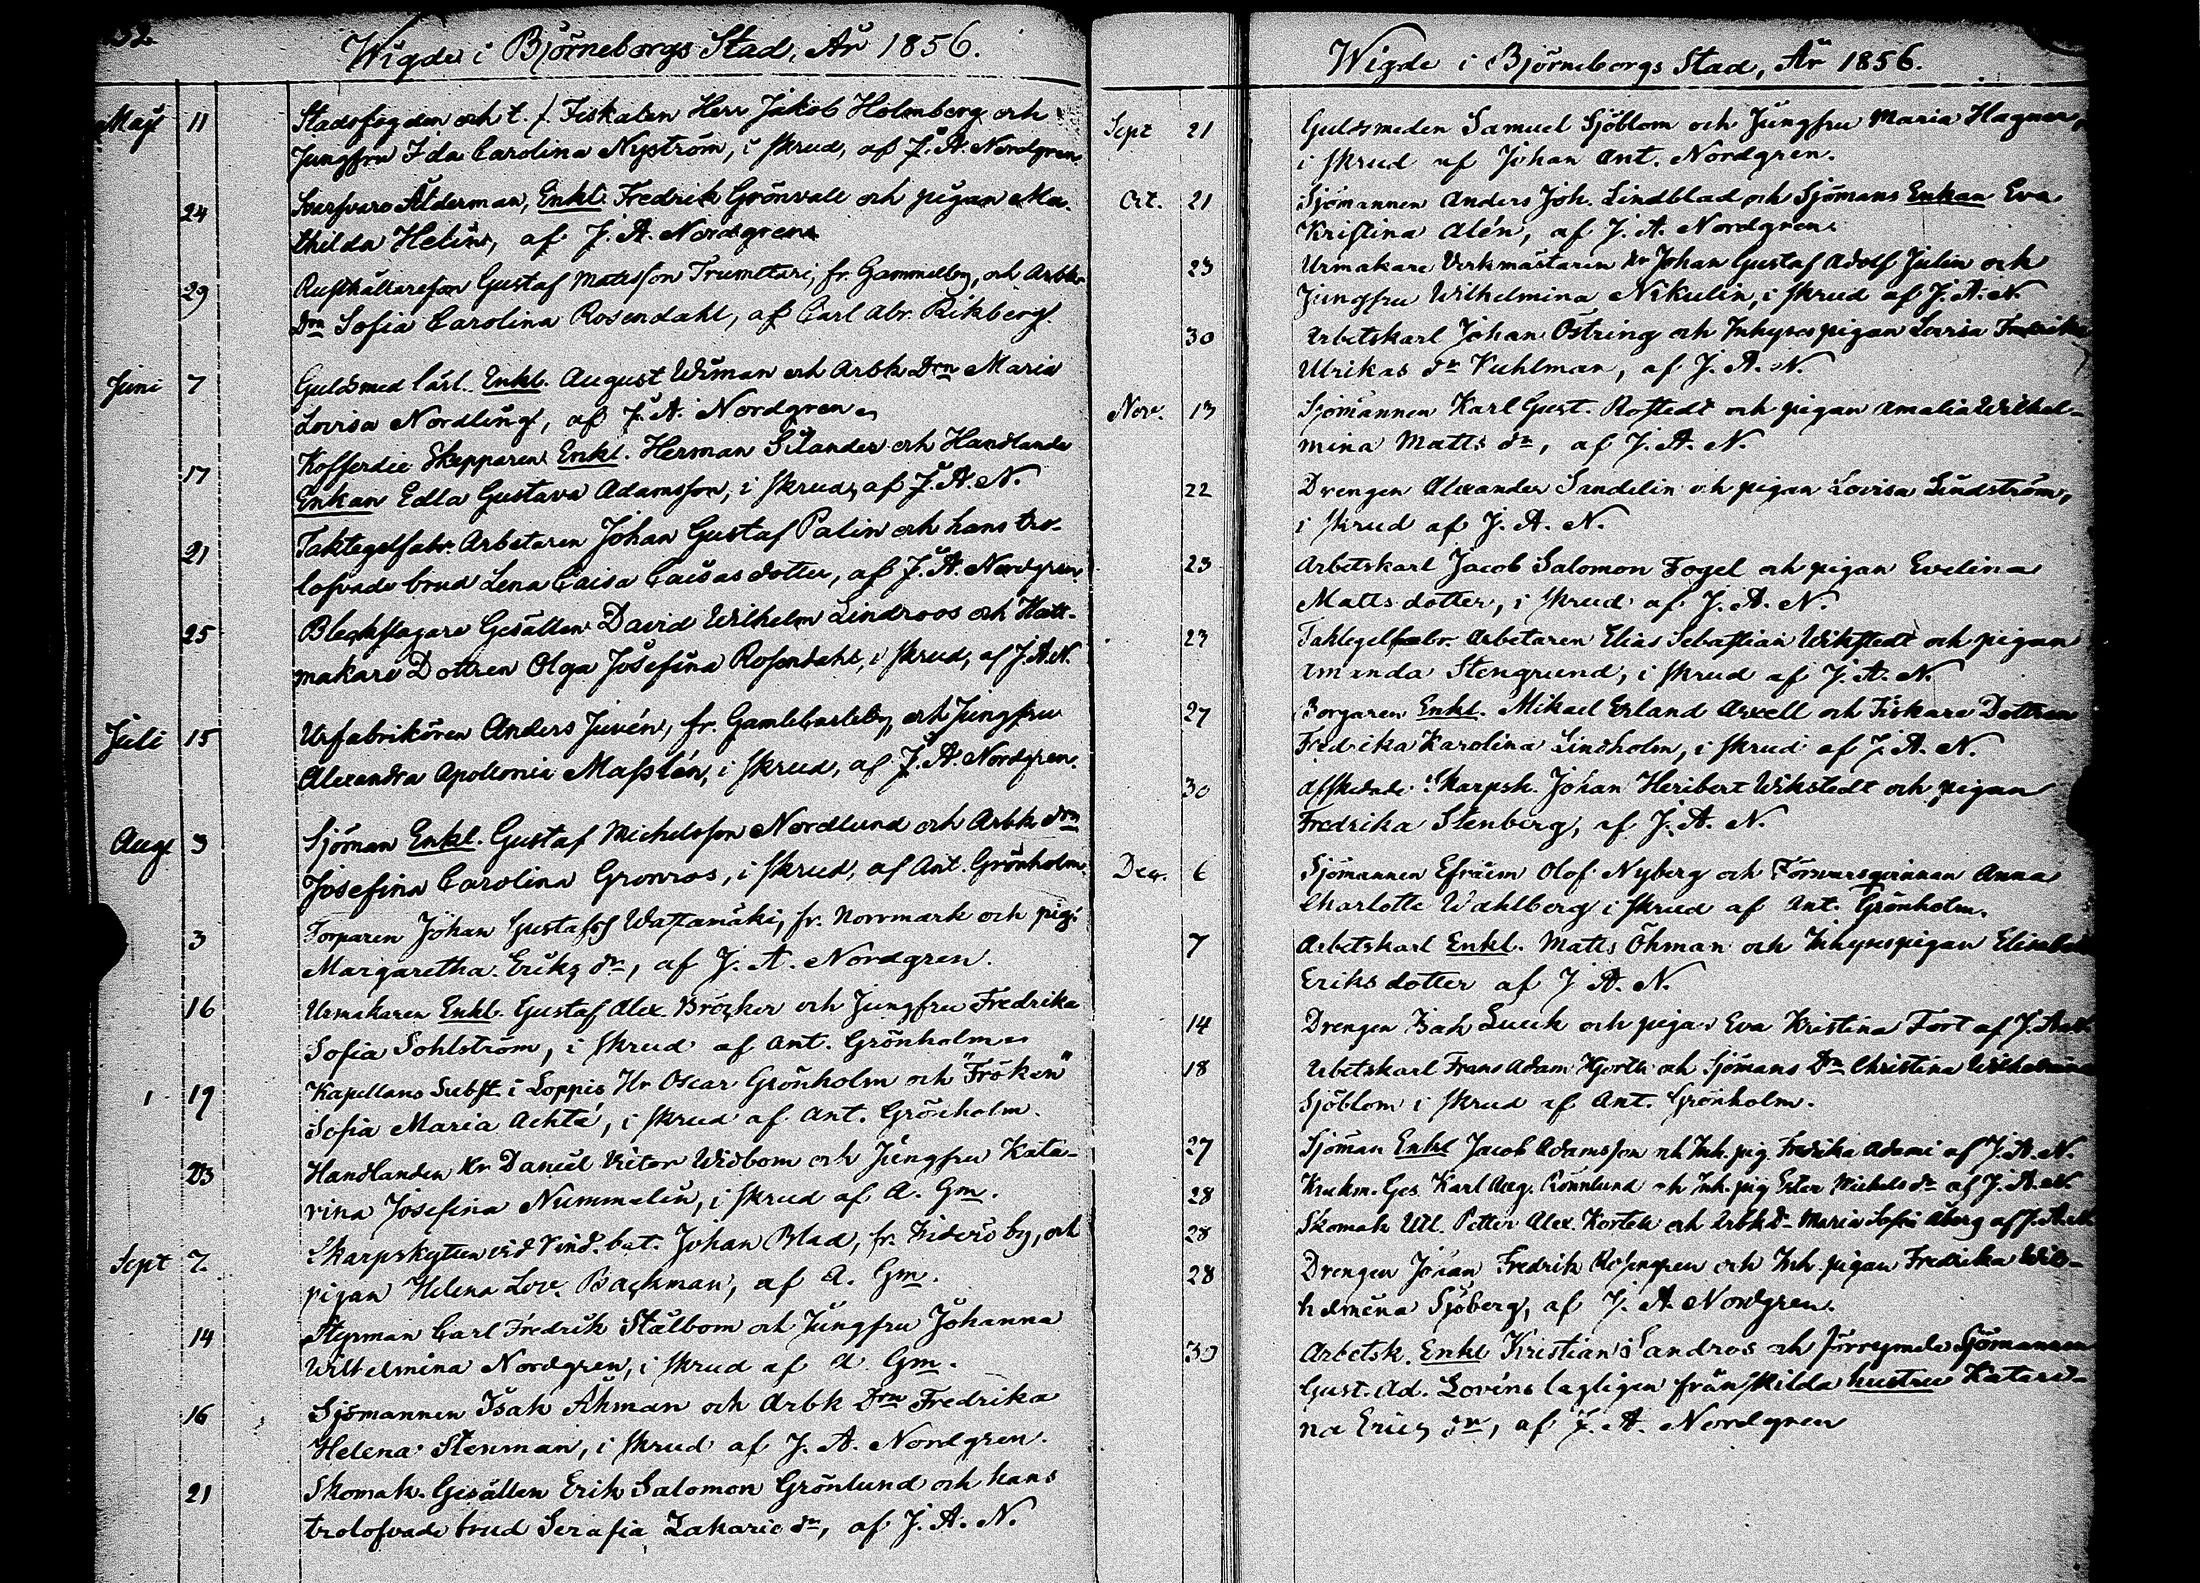 52.
Wigde i Björneborgs Stad, År 1856.
Maji 11 Stadsfogden och t. f. Fiskalen Herr Jakob Holmberg och
Jungfru Ida Carolina Nyström, i skrud, af J. A. Nordgren.
24 Ålderman, Enkl. Fredrik Grönvall och pigan Ma-
thilda Helin, af J. A. Nordgren
29 Rusthållareson Gustaf Mattsson Trumetari, fr. Gammelby, och Arbk.
Drn Sofia Carolina Rosendahl, af Carl Abr. Rikberg.
Juni 7 Guldsmed lärl. Enkl. August Wiman och Arbk Drn Maria
Lovisa Nordling, af J. A. Nordgren
17 Kofferdie Skepparen Enkl. Herman Silander och Handlande
Enkan Edla Gustava Adamsson, i skrud, af J. A. N.
21 Taktegelfabr. Arbetaren Johan Gustaf Palin och hans tro-
lofvade brud Lena Caisa Caisasdotter, af J. A. Nordgren
25 Bleckslagare Gesällen David Wilhelm Lindroos och Hatt-
makare Dottren Olga Josefina Rosendahl, i skrud, af J. A. N.
Juli 15 Urfabrikören Anders Juvén, fr. Gamlekarleby, och Jungfru
Alexandra Apollonia Masslén, i skrud, af J. A. Nordgren.
Aug 3 Sjöman Enkl. Gustaf Michelsson Nordlund och Arbk drn
Josefina Carolina Gronros, i skrud, af Ant. Grönholm.
3 Torparen Johan Gustafss Wattamäki, fr. Norrmark och pig.
Margaretha Eriks dr, af J. A. Nordgren.
16 Urmakaren Enkl. Gustaf Alex Bröcker och Jungfru Fredrika
Sofia Sohlström, i skrud af Ant. Grönholm
19 Kapellans Subst. i Loppis Hr Oscar Grönholm och "Fröken"
Sofia Maria Achté, i skrud af Ant. Grönholm.
23 Handlanden Hr Daniel Victor Widbom och Jungfru Kata-
rina Josefina Nummelin, i skrud af A. Gm.
Sept 7 Skarpskytten vid Find. bat. Johan Blad, fr. Fridersby, och
pigan Helena Lov. Bachman, af A. Gm.
14 Styrman Carl Fredrik Stålbom och Jungfru Johanna
Wilhelmina Nordgren, i skrud af A. Gm.
16 Sjömannen Isak Åhman och Arbk Drn Fredrika
Helena Stenman, i skrud af J. A. Nordgren.
21 Skomak. Gesällen Erik Salomon Grönlund och hans
trolofvade brud Serafia Zakarie dr, af J. A. N.
Wigde i Björneborgs Stad, År 1856.
Sept 21 Guldsmeden Samuel Sjöblom och Jungfru Maria Hagner,
i skrud af Johan Ant. Nordgren.
Oct. 21 Sjömannen Anders Joh. Lindblad och Sjömans Enkan Eva
Kristina Alén, af J. A. Nordgren
23 Urmakare Verkmästaren Hr Johan Gustaf Adolf Julin och
Jungfru Wilhelmina Nikulin, i skrud af J. A. N.
30 Arbetskarl Johan Östring och Inhysespigan Lovisa Fredrika
Ulrikas dr Kuhlman, af J. A. N.
Nov. 13 Sjömannen Karl Gust. Rostedt och pigan Amalia Wilhel-
mina Matts dr, af J. A. N.
22 Drengen Alexander Sandelin och pigan Lovisa Lindström,
i skrud af J. A. N.
23 Arbetskarl Jacob Salomon Fogel och pigan Evelina
Mattsdotter, i skrud af J. A. N.
23 Taktegelfabr. Arbetaren Elias Sebastian Wikstedt och pigan
Amanda Stengrund, i skrud af J. A. N.
27 Borgaren Enkl. Mikael Erland Axell och Fiskare Dottren
Fredrika Karolina Lindholm, i skrud af J. A. N.
30 Afskedade Skarpsk. Johan Heribert Wikstedt och pigan
Fredrika Stenberg, af J. A. N.
Dec. 6 Sjömannen Efraim Olof Nyberg och Anna
Charlotte Wahlberg i skrud af Ant. Grönholm.
7 Arbetskarl Enkl. Matts Öhman och Inhysespigan Elisabet
Eriksdotter af J. A. N.
14 Drengen Isak Luuk och pigan Eva Kristina Fort af J. A. N.
18 Arbetskarl Frans Adam Hjorth och Sjömans Drn Christina Wilhelmina
Sjöblom i skrud af Ant. Grönholm.
27 Sjöman Enkl Jacob Adamsson och Inh. pig. Fredrika Adami af J. A. N.
28 Krukm. Ges. Karl Aug. Rönnlund och Inh. pig Ester Michels dr af J. A. N.
28 Skomak Petter Alex. Kortek och Arbk dr Maria Sofia Åberg af J. A. N.
28 Drengen Johan Fredrik Rosengren och Inh. pigan Fredrika Wil-
helmina Sjöberg, af J. A. Nordgren.
30 Arbetsk. Enkl Kristian Sandros och förrymde Sjömannen
Gust. Ad. Lovéns lagligen frånskilda hustru Katari-
na Erics dr, af J. A. Nordgren